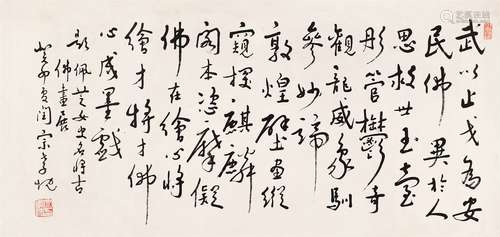 武以止戈為安
民佛異於人
思救世玉臺
彤管欝奇
觀龍威象馴
參妙諦
敦煌壁畫縱
窺探麒麟
閣本恣摩擬
佛在繪心將
繪才將才佛
心成墨戲
題佩芸女史名將古
佛畫展
癸卯夏閏宗孝忱